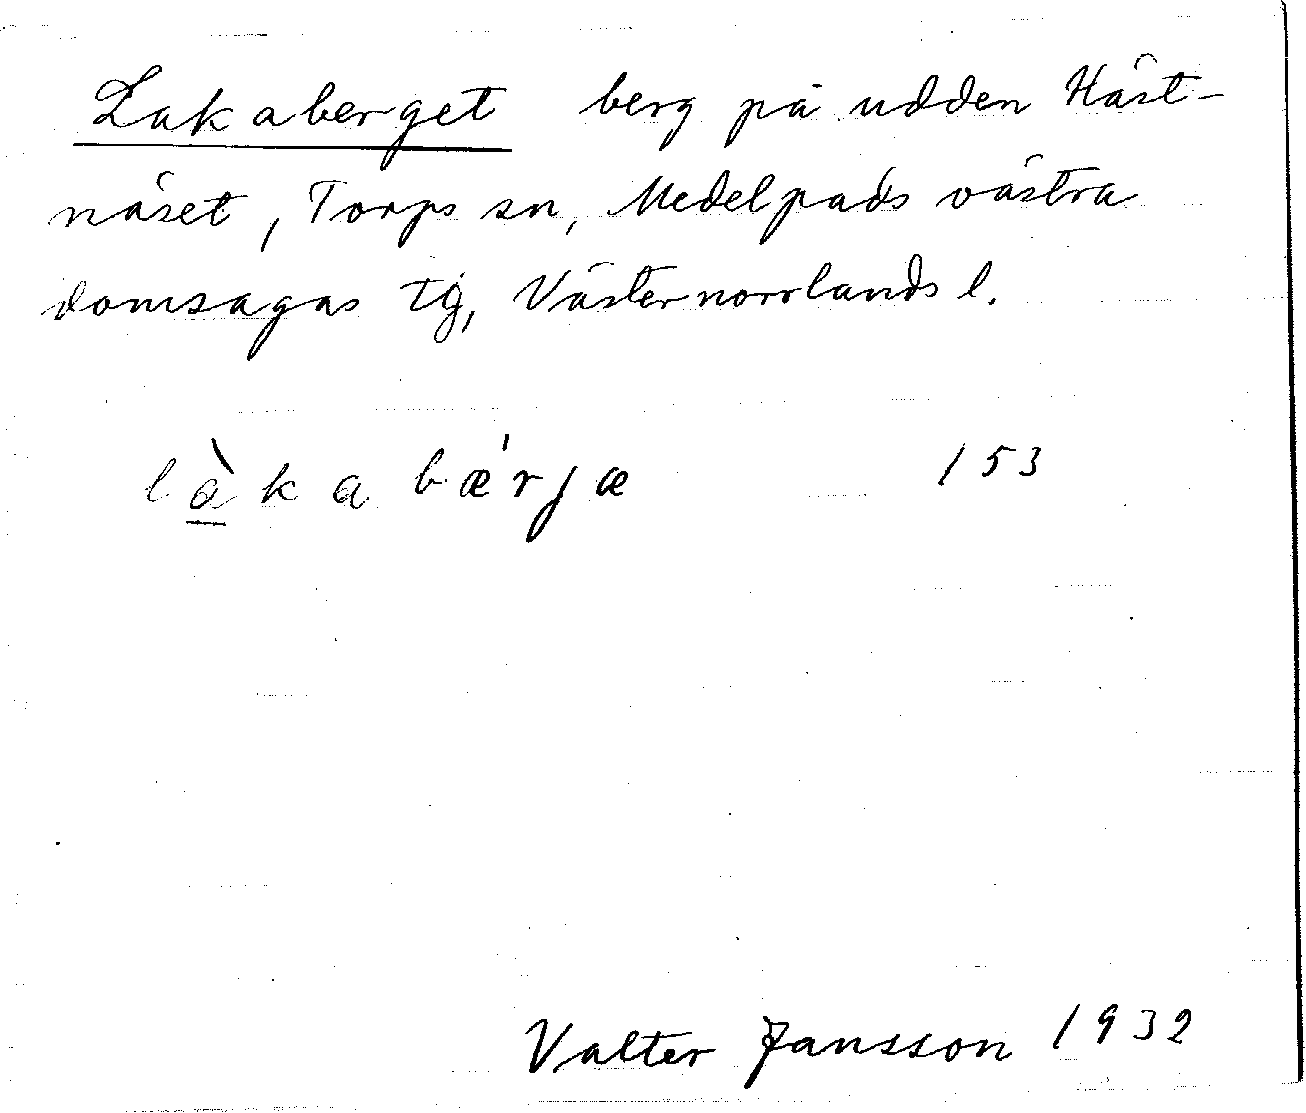 Lakaberget berg på udden Häst-
näset, Torps sn, Medelpads västra
domsagas tg, Västernorrlands l.
là̱kabæ̍rjæ 153
Valter Jansson 1932